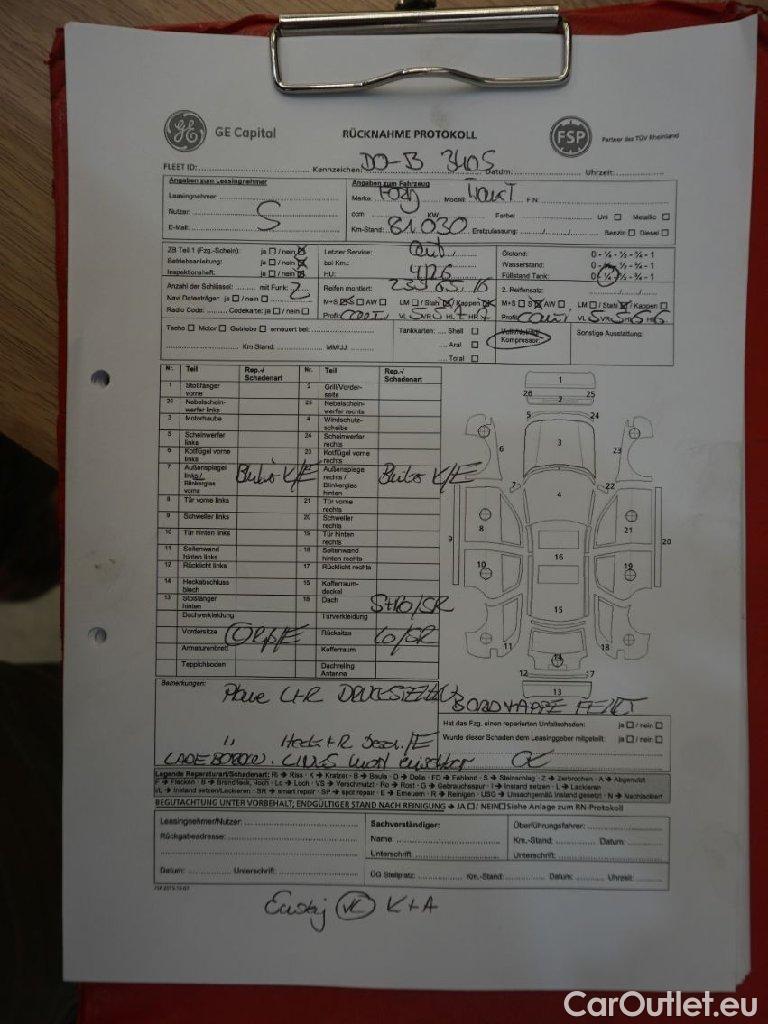 GE Capital RÜCKNAHME PROTOKOLL FSP Partner des TÜV Rheinland
FLEET ID: Kennzeichen: DO-B 3405 Datum: Uhrzeit:
Angaben zum Leasingnehmer Angaben zum Fahrzeug
Leasingnehmer: Marke: Ford Modell: FIN:
Nutzer: S ccm KW Farbe: Uni Metallic
E-Mail: Km-Stand: 81 030 Erstzulassung: Benzin Diesel
ZB Teil 1 (Fzg.-Schein): ja / nein Letzter Service: Ölstand: 0 - ¼ - ½ - ¾ - 1
Betriebsanleitung: ja / nein bei Km.: Wasserstand: 0 - ¼ - ½ - ¾ - 1
Inspektionsheft: ja / nein HU: 4/26 Füllstand Tank: 0 - ¼ - ½ - ¾ - 1
Anzahl der Schlüssel: mit Funk: 2 Reifen montiert: 2. Reifensatz:
Navi Datenträger: ja / nein M+S AW LM / Stahl / Kappen M+S AW LM / Stahl / Kappen
Radio Code: Codekarte: ja / nein Profil VL VR HL HR Profil VL VR HL HR
Tacho Motor Getriebe erneuert bei: Tankkarten: Shell Voll-/Notrad Kompressor: Sonstige Ausstattung:
Km Stand: MM/JJ Aral
Total
Nr. Teil Rep.-/ Schadenart Nr. Teil Rep.-/ Schadenart
1 Stoßfänger vorne 2 Grill/Vorderseite
26 Nebelscheinwerfer links 25 Nebelscheinwerfer rechts
3 Motorhaube 4 Windschutzscheibe
5 Scheinwerfer links 24 Scheinwerfer rechts
6 Kotflügel vorne links 23 Kotflügel vorne rechts
7 Außenspiegel links/ Blinkerglas vorne K/E 22 Außenspiegel rechts/ Blinkerglas hinten K/E
8 Tür vorne links 21 Tür vorne rechts
9 Schweller links 20 Schweller rechts
10 Tür hinten links 19 Tür hinten rechts
11 Seitenwand hinten links 18 Seitenwand hinten rechts
12 Rücklicht links 17 Rücklicht rechts
14 Heckabschlussblech 15 Kofferraumdeckel
13 Stoßfänger hinten 16 Dach
Dachverkleidung Türverkleidung
Vordersitze Rücksitze
Armaturenbrett Kofferraum
Teppichboden Dachreling Antenne
Bemerkungen: Plane L+R DRUCKSTELLEN
BORDMAPPE FEHLT
Hat das Fzg. einen reparierten Unfallschaden: ja / nein
Wurde dieser Schaden dem Leasinggeber mitgeteilt: ja / nein
LADEBODEN LINKS
Legende Reparaturart/Schadenart: Ri → Riss · K → Kratzer · B → Beule · D → Delle · FD → Fehlend · S → Steinschlag · Z → Zerbrochen · A → Abgenutzt
F → Flecken · B → Brandfleck, Loch · Lo → Loch · VS → Verschmutzt · Ro → Rost · G → Gebrauchsspur · I → Instand setzen · L → Lackieren
I/L → Instand setzen/Lackieren · SR → smart repair · SP → spot repair · E → Erneuern · R → Reinigen · USG → Unsachgemäß instand gesetzt · N → Nachlackiert
BEGUTACHTUNG UNTER VORBEHALT; ENDGÜLTIGER STAND NACH REINIGUNG → JA / NEIN Siehe Anlage zum RN-Protokoll
Leasingnehmer/Nutzer: Sachverständiger: Überführungsfahrer:
Rückgabeadresse: Name Km.-Stand: Datum:
Unterschrift Unterschrift:
Datum: Unterschrift: ÜG Stellplatz: Km.-Stand: Datum: Uhrzeit:
K+A
CarOutlet.eu